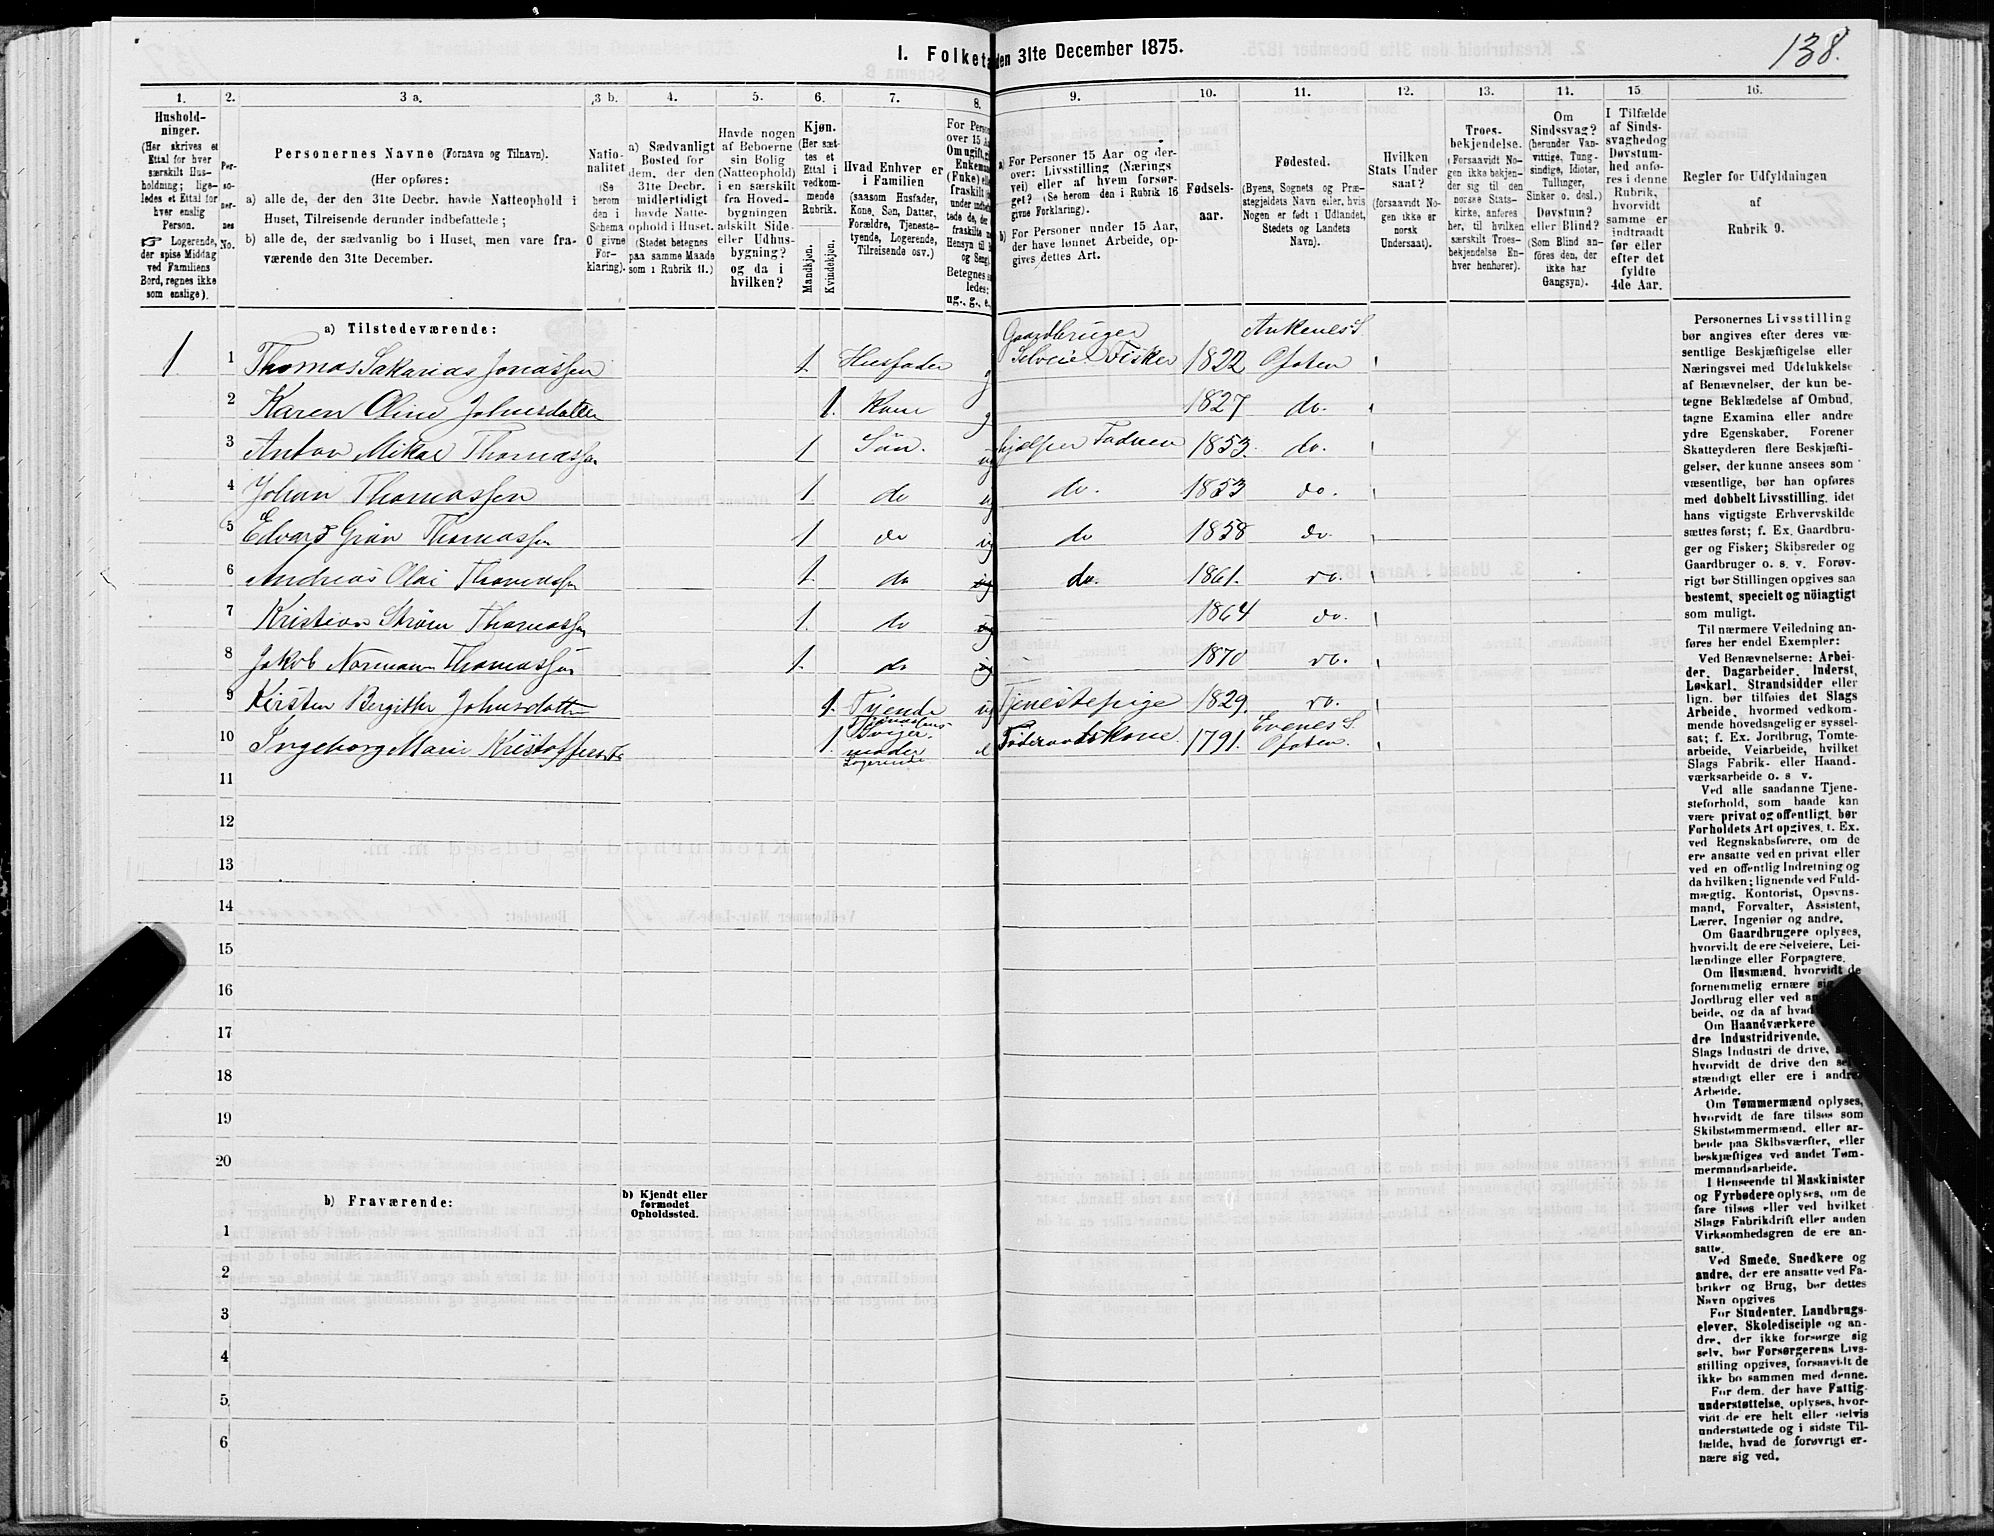 I. Folketæ den 31te December 1875.
138.
1.
2.
3 a.
3 b.
4.
5.
6.
7.
8.
9.
10.
11.
12.
13.
14.
15
16.
Hushold-
ninger.
(Her skrives et
Ettal for hver
særskilt Hus-
holdning; lige-
ledes et Ettal for
hver enslig
Person.
☞ Logerende,
der spise Middag
ved Familiens
Bord, regnes ikke
som enslige).
Per-
so-
ner-
nes
No.
Personernes Navne (Fornavn og Tilnavn).
(Her opføres:
a) alle de, der den 31te Decbr. havde Natteophold i
Huset, Tilreisende derunder indbefattede;
b) alle de, der sædvanlig bo i Huset, men vare fra-
værende den 31te December.
Natio-
nalitet
(Se
herom
den i
Schema
O givne
For-
klaring).
a) Sædvanligt
Bosted for
dem, der den
31te Decbr.
midlertidigt
havde Natte-
ophold i Huset.
(Stedet betegnes
paa samme Maade
som i Rubrik 11.)
Havde nogen
af Beboerne
sin Bolig
(Natteophold)
i en særskilt
fra Hoved-
bygningen
adskilt Side-
eller Udhus-
bygning?
og da i
hvilken?
Kjøn.
(Her sæt-
tes et
Ettal i
vedkom-
mende
Rubrik.
Mandkjøn.
Kvindekjøn.
Hvad Enhver er
i Familien
(saasom Husfader,
Kone, Søn, Datter,
Forældre, Tjeneste-
tyende, Logerende,
Tilreisende osv.)
For Person
over 15 Aa
Om ugift, gi
Enkeman
(Enke) elle
fraskilt
Betegnes s
ledes:
ug., g., e.
a) For Personer 15 Aar og der-
over: Livsstilling (Nærings
vei) eller af hvem forsør-
get? (Se herom den i Rubrik 16
givne Forklaring).
b) For Personer under 15 Aar,
der have lønnet Arbeide, op-
gives dettes Art.
Fødsels-
aar.
Fødested.
(Byens, Sognets og Præ-
stegjeldets Navn eller, hvis
Nogen er født i Udlandet,
Stedets og Landets
Navn).
Hvilken
Stats Under
saat?
(forsaavidt No-
gen ikke er
norsk
Undersaat).
Troes-
bekjendelse.
(Forsaavidt No-
gen ikke bekjen-
der sig til den
norske Stats-
kirke, anføres
her, til hvilken
særskilt Troes-
bekjendelse En-
hver henhører).
Om
Sindssvag?
(herunder Van-
vittige, Tung-
sindige, Idioter,
Tullinger,
Sinker o. desl.)
Døvstum?
eller Blind?
(Som Blind an-
føres den, der
ikke har
Gangsyn).
I Tilfælde
af Sinds-
svaghed og
Døvstum-
hed anfø-
res i denne
Rubrik,
hvorvidt
samme er
indtraadt
før eller
efter det
fyldte
4de Aar.
Regler for Udfyldningen
af
Rubrik 9.
a) Tilstedeværende:
Gaardbruger Ankenes S.
1 1 Thomas Sakarias Jonassen 1. Husfader g Selveier Fisker 1822 Ofoten
2 Karen Oline Johnsdatter 1. Kone g 1827 do.
3 Anton Mikal Thomassen 1 Søn. ug hjælper Faderen 1853 do.
4 Johan Thomassen 1. do ug do. 1853 do.
5 Edvard Grøn Thomassen 1. do ug do 1858 do.
6 Andreas Olai Thomassen 1. do ug do. 1861. do.
7 Kristian Strøm Thomassen 1. do ug 1864 do.
8 Jakob Norman Thomassen 1. do ug 1870 do.
9 Kirsten Bergitthe Johnsdatter 1. Tjende ug Tjenestepige 1829. do.
10 Ingeborg Marie Kristoffersdr 1. Svigermoder Logerende e Føderaadskone 1791. Evenes S. Ofoten.
11
12
13
14
15
16
17
18
19
20
b) Fraværende:
b) Kjendt eller
formodet
Opholdssted.
1
2
3
4
5
6
Personernes Livsstilling
bør angives efter deres væ-
sentlige Beskjæftigelse eller
Næringsvei med Udelukkelse
af Benævnelser, der kun be-
tegne Beklædelse af Ombud,
tagne Examina eller andre
ydre Egenskaber. Forener
Skatteyderen flere Beskjæfti-
gelser, der kunne ansees som
væsentlige, bør han opføres
med dobbelt Livsstilling, idet
hans vigtigste Erhvervskilde
sættes først; f. Ex. Gaardbru-
ger og Fisker; Skibsreder og
Gaardbruger o. s. v. Forøv-
rigt bør Stillingen opgives saa
bestemt, specielt og nöiagtigt
som muligt.
Til nærmere Veiledning an-
føres her endel Exempler:
Ved Benævnelserne: Arbei-
der, Dagarbeider, Inderst,
Løskarl, Strandsidder eller
lign. bør tilføies det Slags
Arbeide, hvormed vedkom-
mende hovedsagelig er syssel-
sat; f. Ex. Jordbrug, Tomte-
arbeide, Veiarbeide, hvilket
Slags Fabrik- eller Haand-
værksarbeide o. s v.
Ved alle saadanne Tjene-
steforhold, som baade kan
være privat og offentligt, bør
Forholdets Art opgives, t. Ex.
ved Regnskabsførere, om de
ere ansatte ved en privat eller
ved en offentlig Indretning og
da hvilken; lignende ved Fuld-
mægtig, Kontorist, Opsyns-
mand, Forvalter, Assistent,
Lærer, Ingeniør og andre.
Om Gaardbrugere oplyses,
hvorvidt de ere Selveiere, Lei-
lændinge eller Forpagtere.
Om Husmænd, hvorvidt de
fornemmelig ernære sig
Jordbrug eller ved an
beide, og da af hvad
Om Haandværkere
dre Industridrivende,
Slags Industri de drive,
hvorvidt de drive den sel
stændigt eller ere i andres
Arbeide.
Om Tømmermænd oplyses,
hvorvidt de fare tilsøs som
Skibstømmermænd, eller ar-
beide paa Skibsværfter, eller
beskjæftiges ved andet Tøm-
mermandsarbeide.
I Henseende til Maskinister
og Fyrbødere oplyses, om de
fare tilsøs eller ved hvilket
Slags Fabrikdrift eller anden
Virksomhedsgren de ere an-
satte.
Ved Smede, Snedkere og
andre, der ere ansatte ved Fa-
briker og Brug, bør dettes
Navn opgives
For Studenter, Landbrugs-
elever, Skoledisciple og an-
dre, der ikke forsørge sig
selv, bør Forsørgerens Livs-
stilling opgives, forsaavidt de
ikke bo sammen med denne.
For dem, der have Fattig-
understøttelse, oplyses, hvor-
vidt de ere helt eller delvis
understøttede og i sidste Til-
fælde, hvad de forøvrigt er-
nære sig ved.